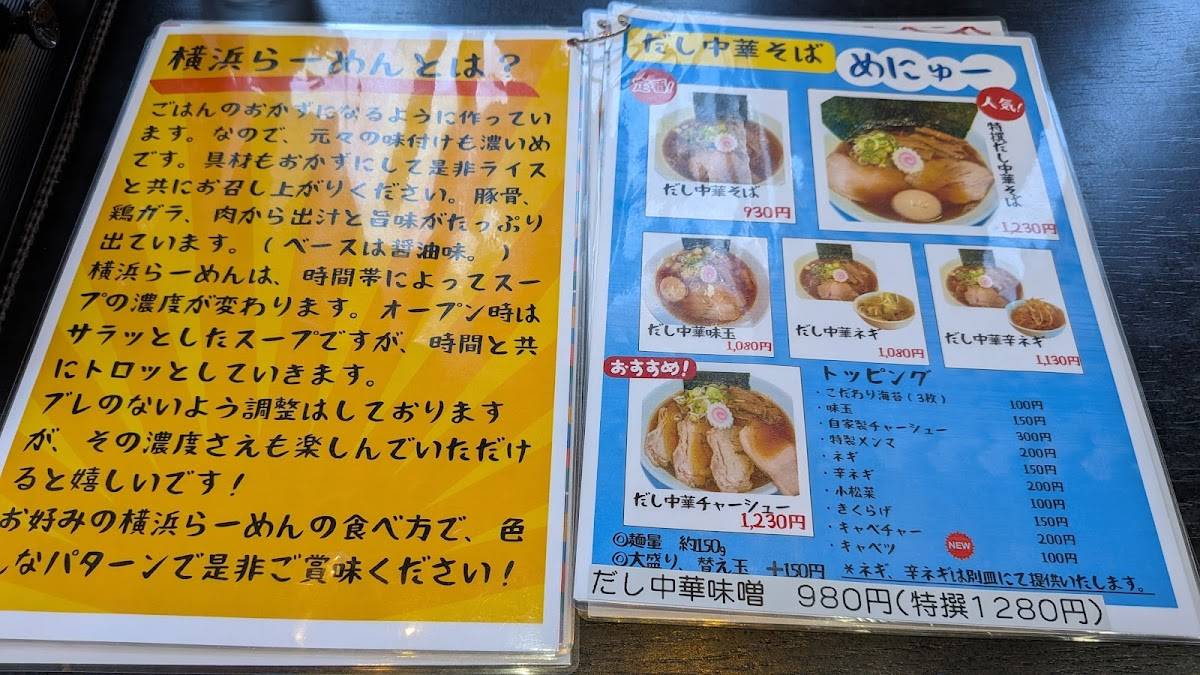 横浜らーめんとは？
ごはんのおかずになるように作ってい
ます。なので、元々の味付けも濃いめ
です。具材もおかずにして是非ライス
と共にお召し上がりください。豚骨、
鶏ガラ、肉から出汁と旨味がたっぷり
出ています。（ベースは醤油味。）
横浜らーめんは、時間帯によってスー
プの濃度が変わります。オープン時は
サラッとしたスープですが、時間と共
にトロッとしていきます。
ブレのないよう調整はしております
が、その濃度さえも楽しんでいただけ
ると嬉しいです！
お好みの横浜らーめんの食べ方で、色
なパターンで是非ご賞味ください！
だし中華そば めにゅー
定番！
だし中華そば
930円
人気！
特撰だし中華そば
1,230円
だし中華味玉
1,080円
だし中華ネギ
1,080円
だし中華辛ネギ
1,130円
おすすめ！
だし中華チャーシュー
1,230円
トッピング
・こだわり海苔（3枚） 100円
・味玉 150円
・自家製チャーシュー 300円
・特製メンマ 200円
・ネギ 150円
・辛ネギ 200円
・小松菜 100円
・きくらげ 150円
・キャベチャー 200円
・キャベツ NEW 100円
◎麺量 約150g
◎大盛り、替え玉 +150円
＊ネギ、辛ネギは別皿にて提供いたします。
だし中華味噌 980円(特撰1280円)